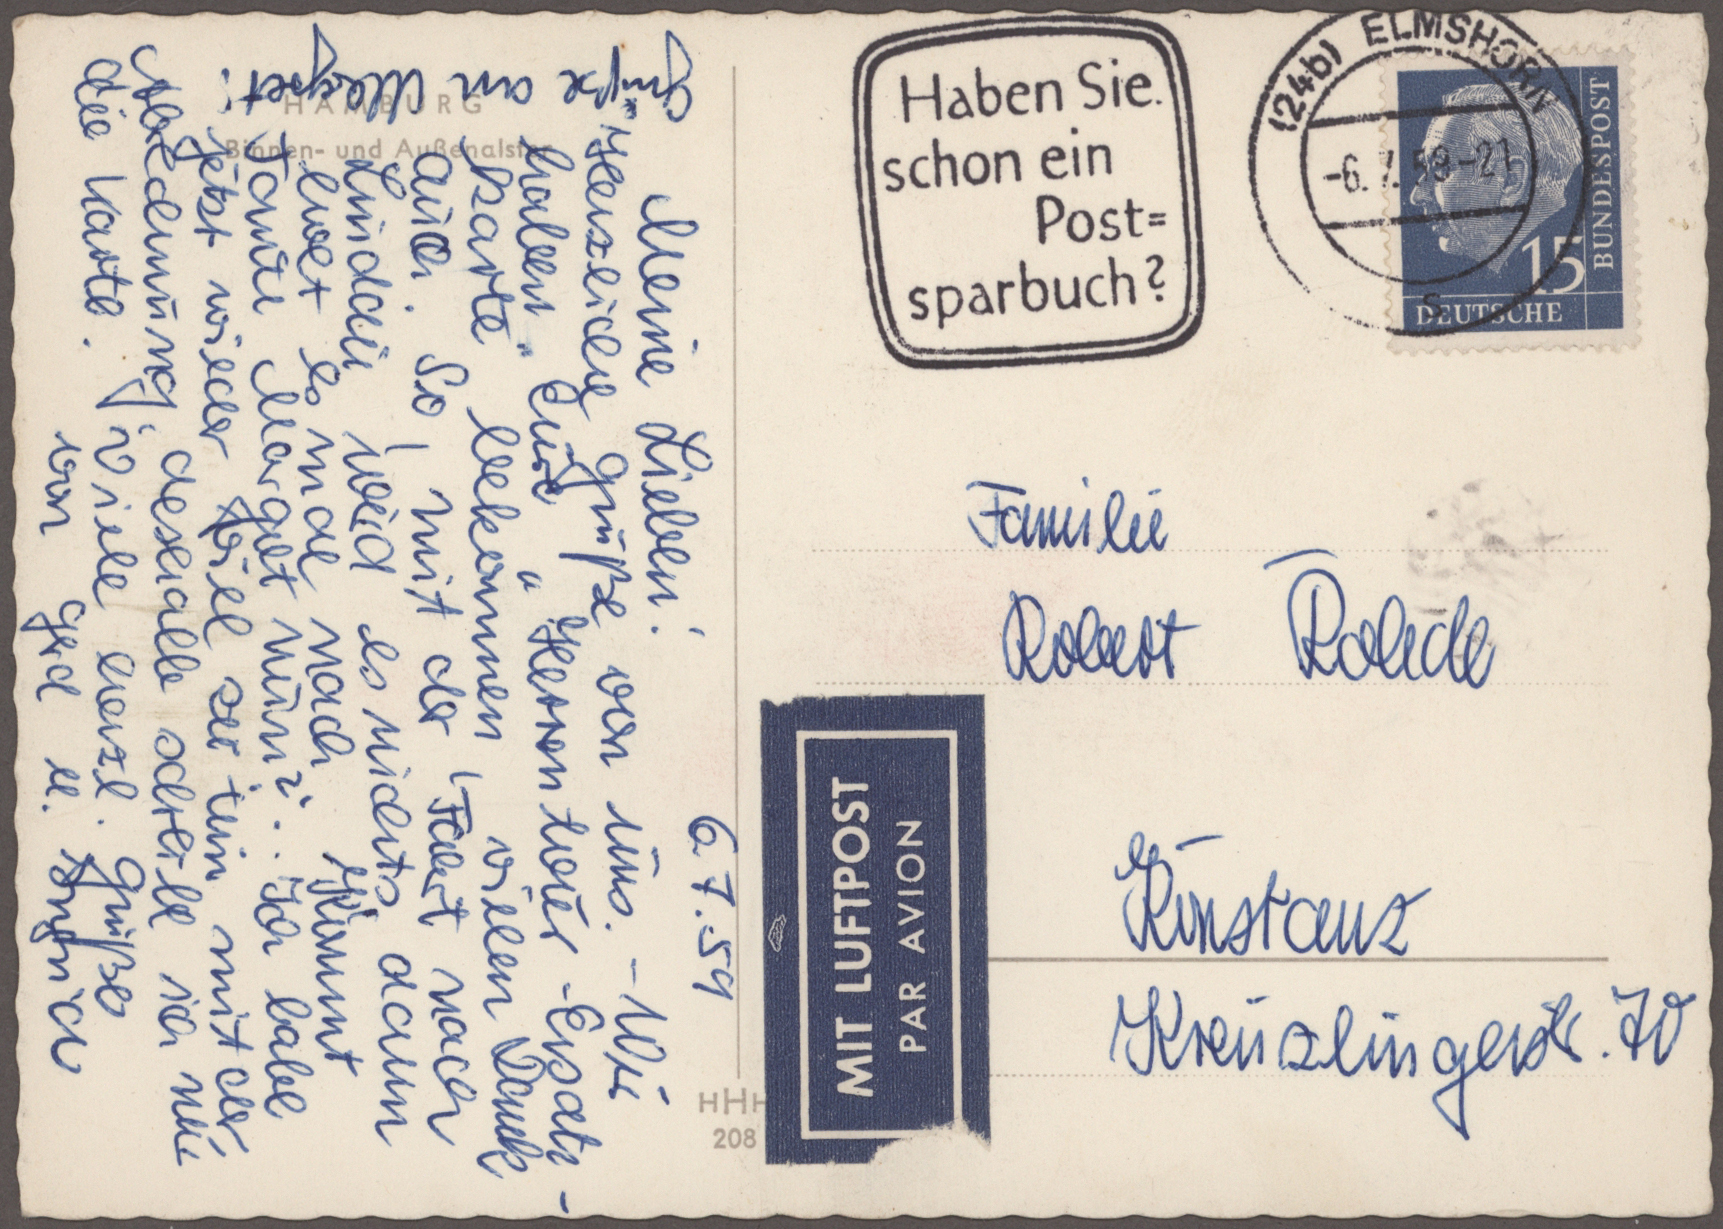 HAMBURG
Binnen- und Außenalster
6.7.59
Meine Lieben!
Herzliche Grüße von uns. – Wir
haben Eure "Herrenhaus-Ersatz-
karte" bekommen, vielen Dank
auch. So, mit der Fahrt nach
Lindau wird es nichts, dann
aber Ende nach. Kommt
Tante Margot nun? Ich habe
jetzt wieder viel zu tun mit der
deshalb schreibe ich nur
die Karte. Viele herzl. Grüße
von Gerd u.
Grüße an Margret!
Haben Sie
schon ein
Post=
sparbuch?
(24b) ELMSHORN
-6.7.59-21
s
15
DEUTSCHE
BUNDESPOST
Familie
Robert Rohde
Konstanz
Kreuzlingerstr. 70
MIT LUFTPOST
PAR AVION
HHH
208